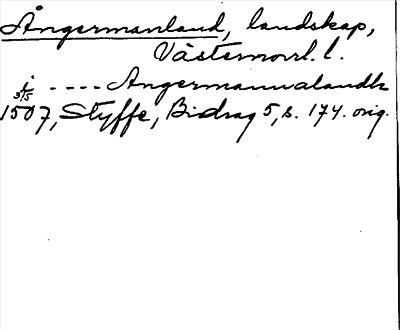 Ångermanland, landskap,
Västernorrl. l.
i ---- Angermannalandh
3/5
1507, Styffe, Bidrag 5, s. 174. orig.